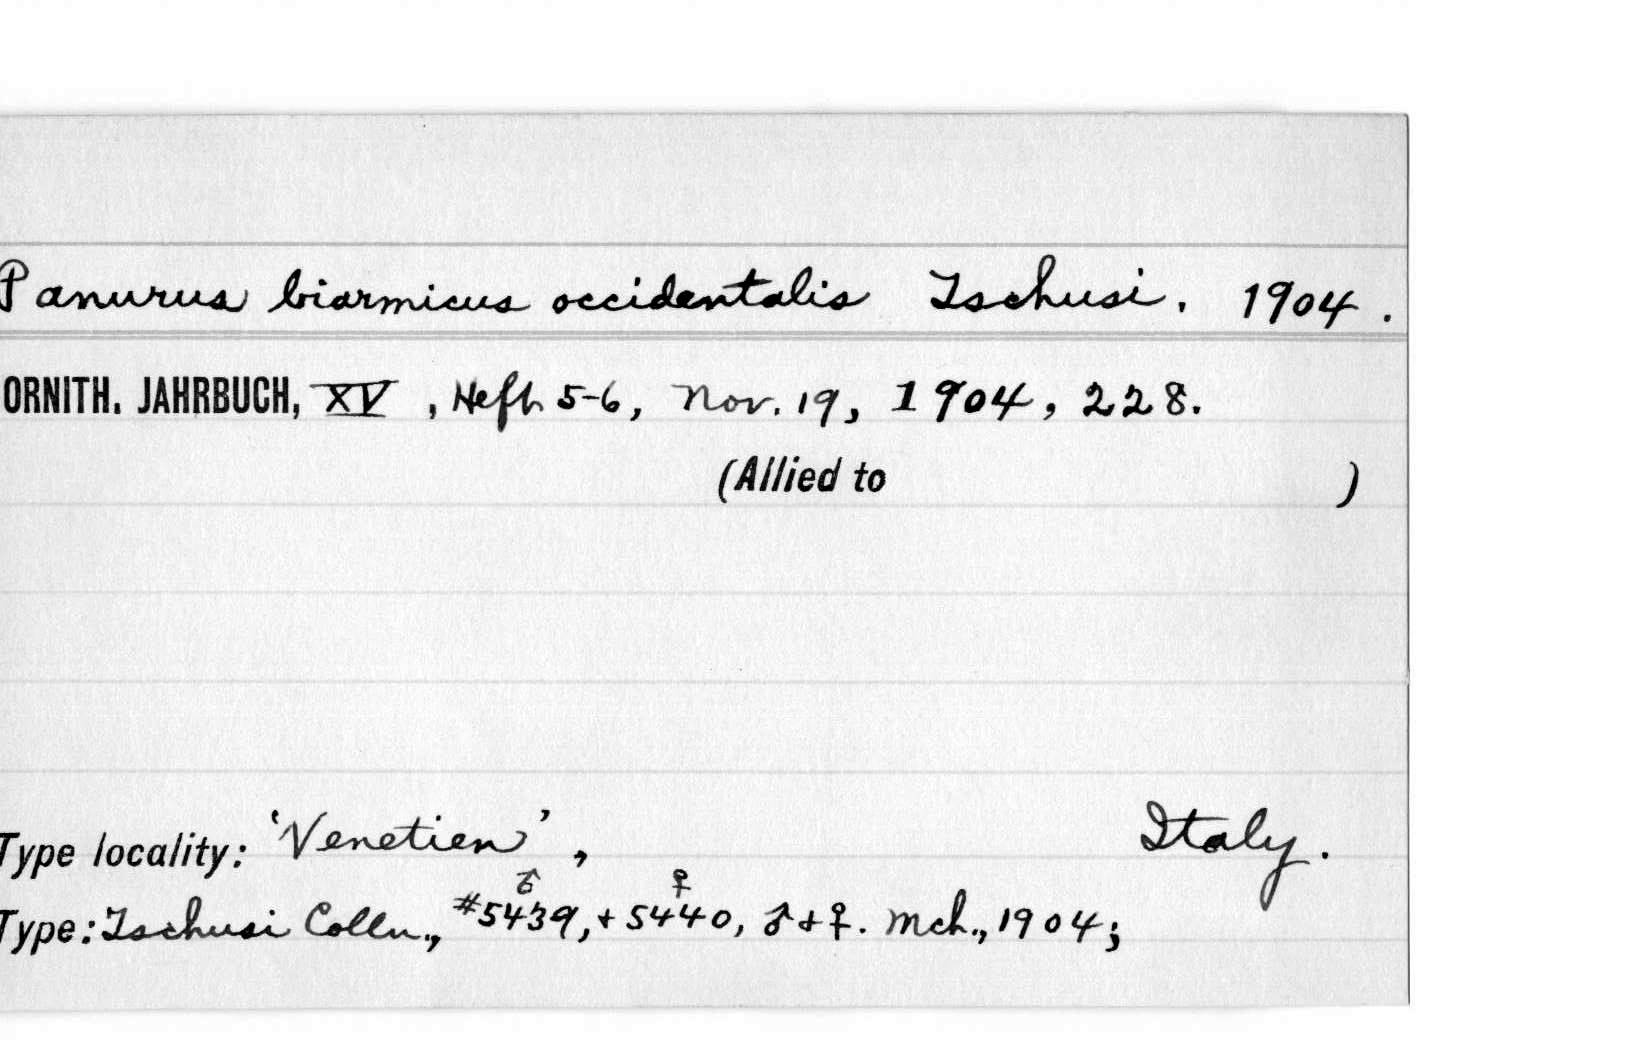 Panurus biarmicus occidentalis Tschusi. 1904.
ORNITH. JAHRBUCH, XV, Heft 5-6, Nov. 19, 1904, 228.
(Allied to )
Type locality: 'Venetien', Italy.
♂ ♀
Type: Tschusi Colln., #5439, + 5440, ♂ + ♀. Mch., 1904;